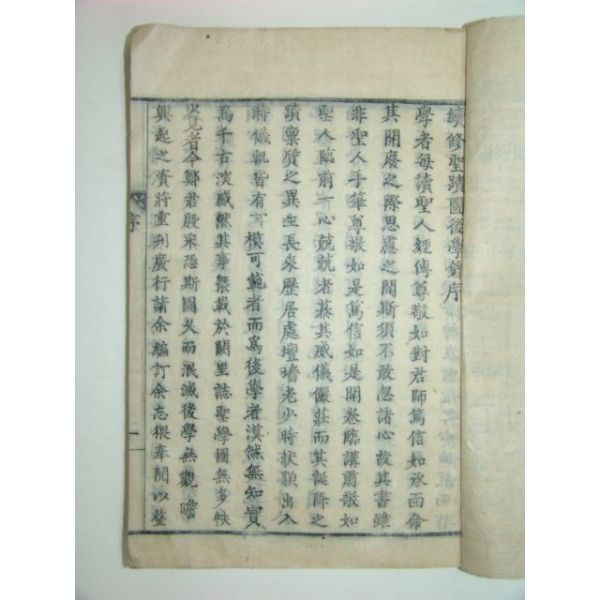 續修聖蹟圖後學錄序
學者每讀聖人經傳尊敬如對君師篤信如承面命
其開廢之際思慮之間斯須不敢忽諸心故其書雖
非聖人手筆尊敬如是篤信如是開卷臨講肅敬如
聖人臨前一心兢兢者慕其威儀儼莊而其誕降之
蹟稟質之異生長來歷居處壇墻老少時狀顯出入
時儀觀皆有可模可範者而爲後學者漠然無知實
爲千古淡感然其事槩載於闕里誌聖學圖無多帙
少見者今鄭君殷采恐斯圖久而泯滅後學無觀瞻
興起之資將重刊廣行請余編訂余忘猥奉閱以整
序
一